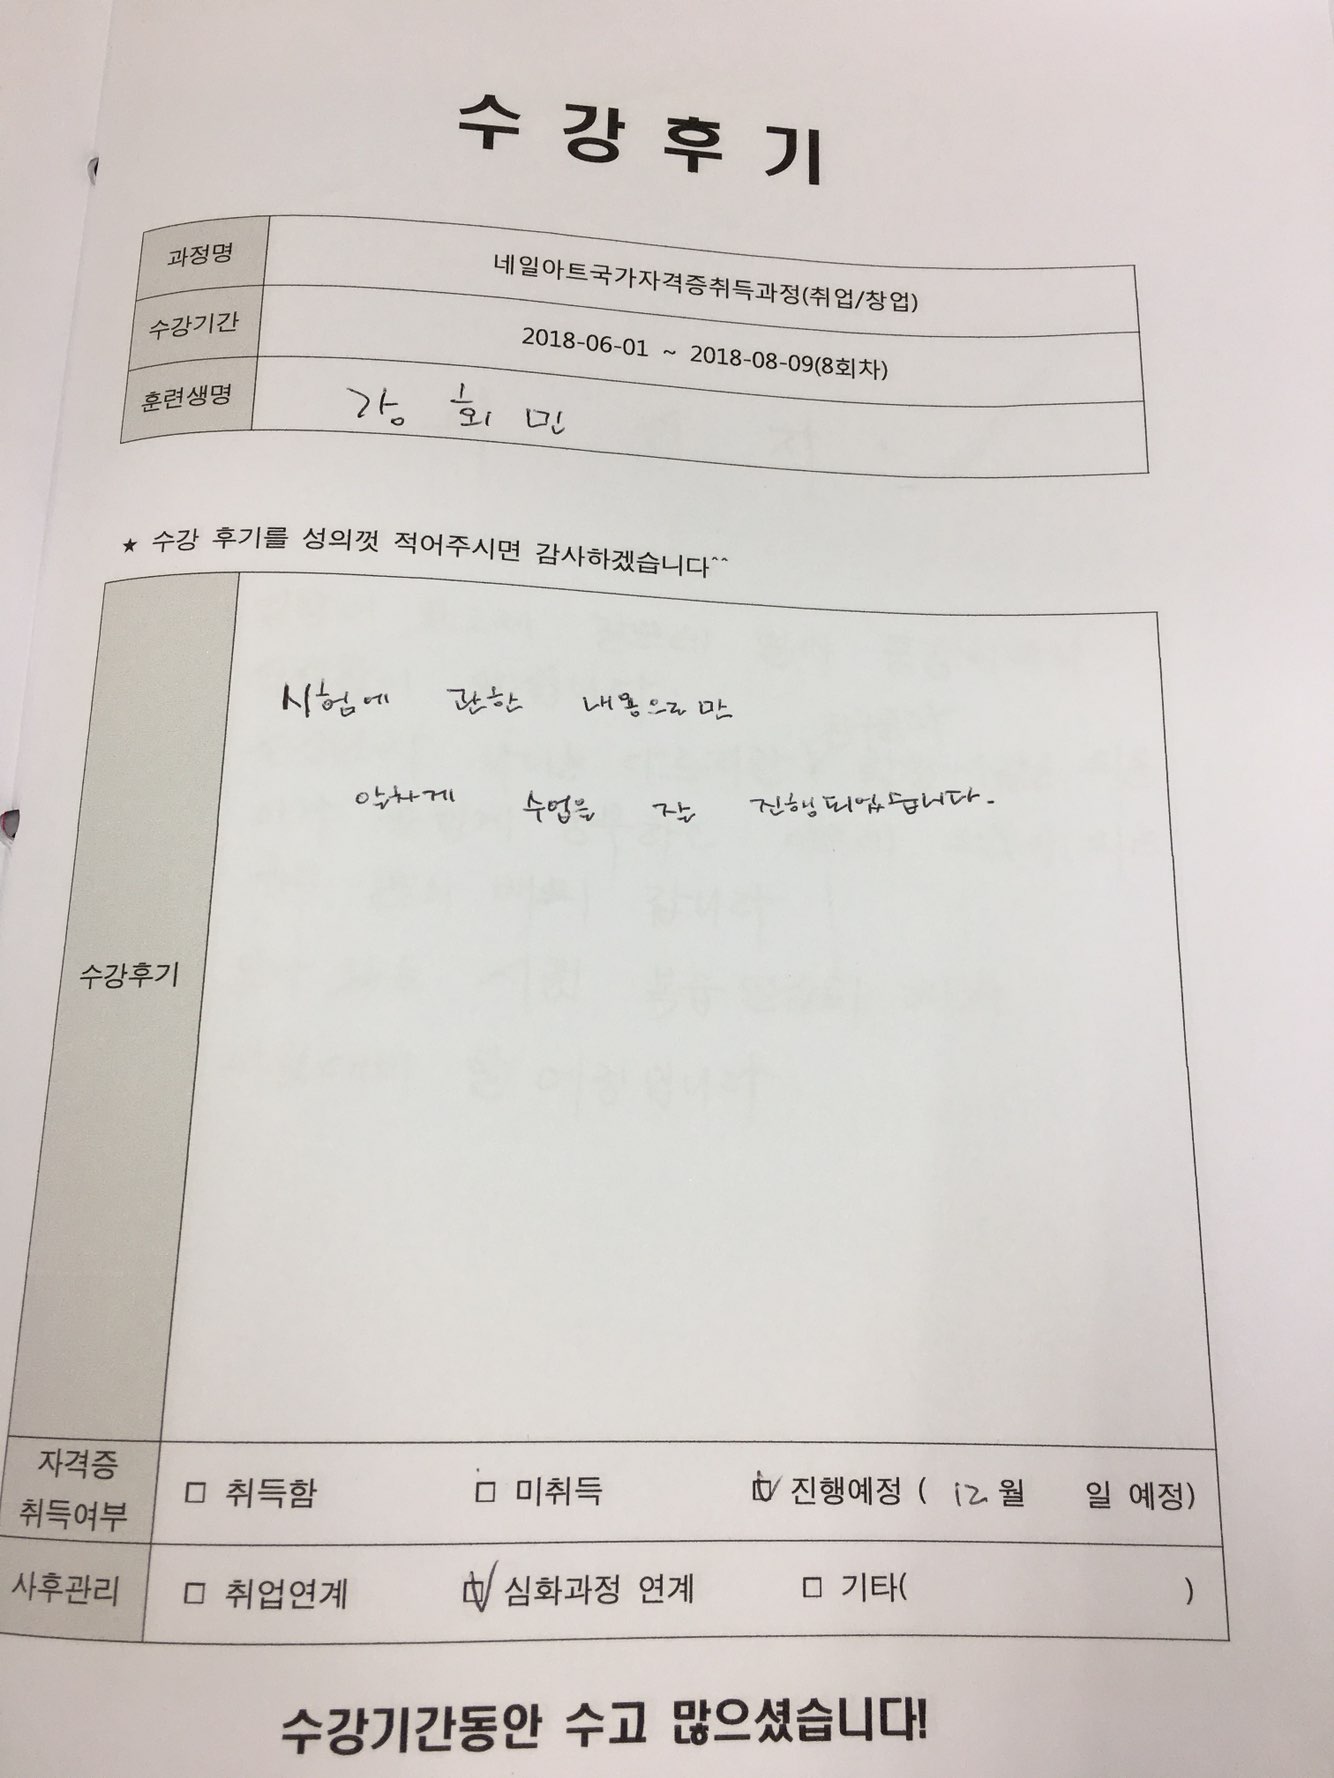 수강후기
과정명 네일아트국가자격증취득과정(취업/창업)
수강기간 2018-06-01 ~ 2018-08-09(8회차)
훈련생명 강 회 민
★ 수강 후기를 성의껏 적어주시면 감사하겠습니다^^
시험에 관한 내용으로만
알차게 수업을 잘 진행되었습니다.
수강후기
자격증
취득여부
□ 취득함 □ 미취득 ☑ 진행예정 ( 12월 일 예정)
사후관리 □ 취업연계 ☑ 심화과정 연계 □ 기타( )
수강기간동안 수고 많으셨습니다!